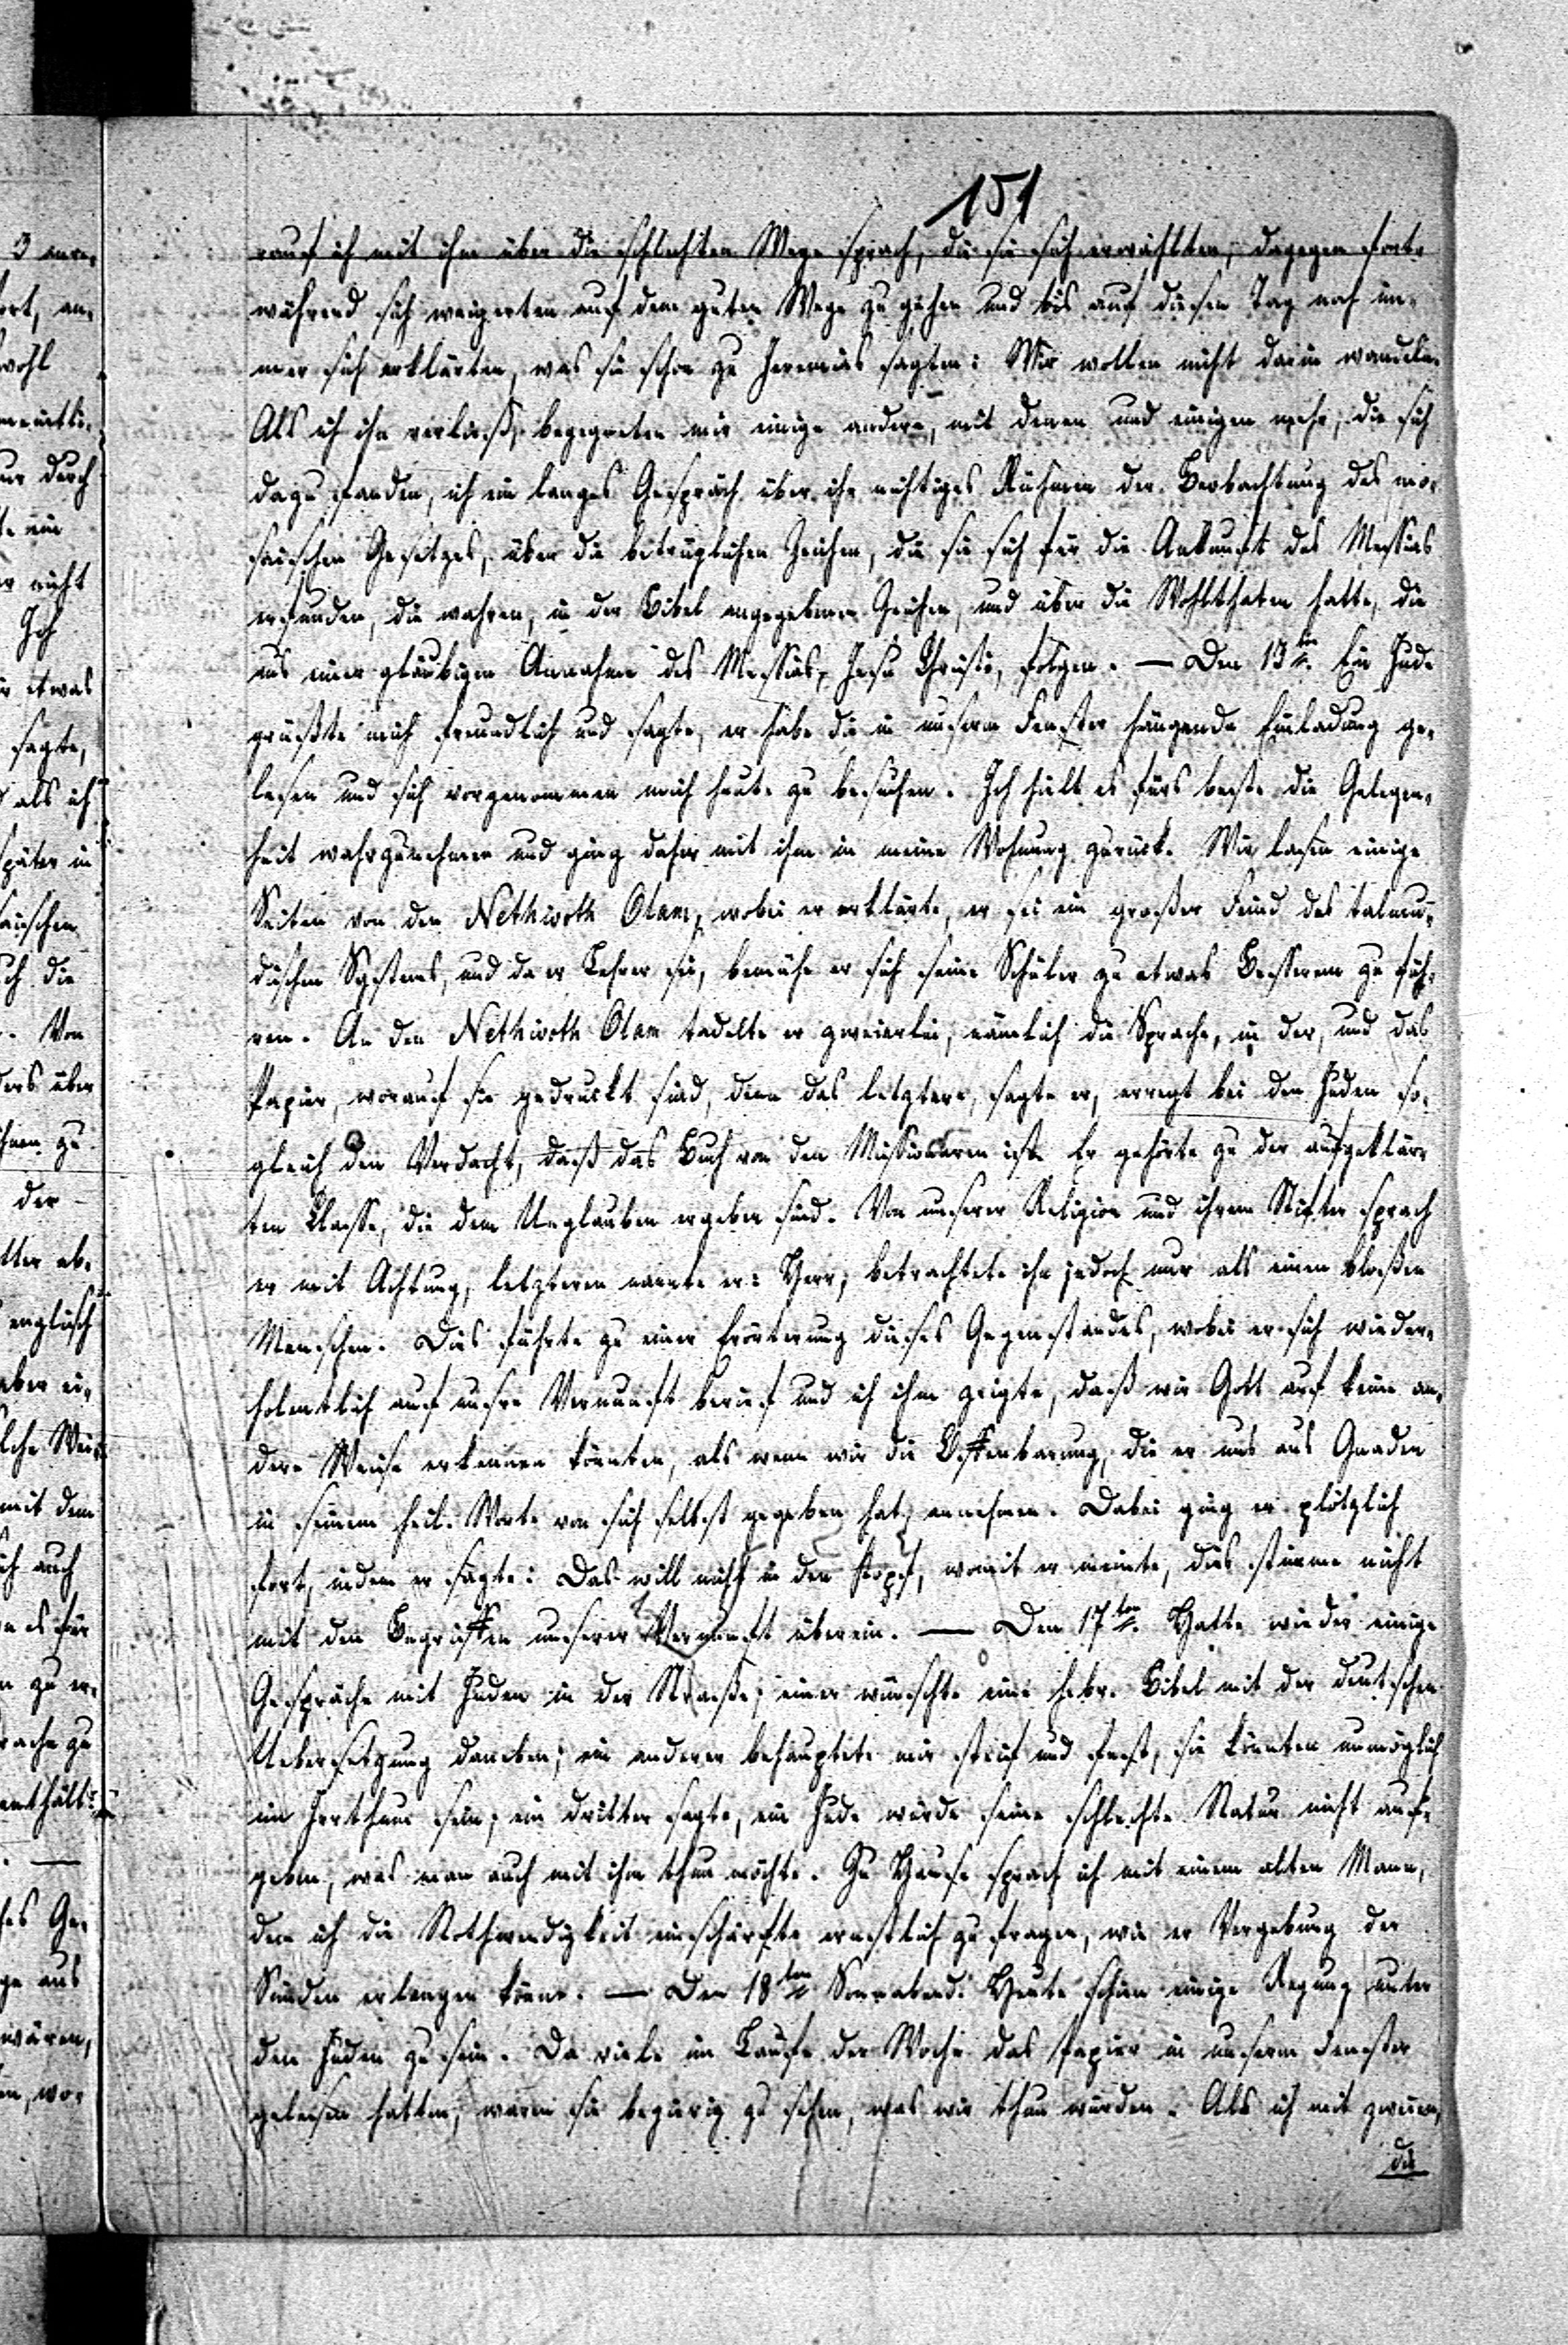 151
rauf ich mit ihm über die schlechten Wege sprach, die sie sich erwählten, dagegen fort-
während sich weigerten auf dem guten Wege zu gehen und bis auf diesen Tag noch im-
mer sich erklärten, was sie schon zu Jeremias sagten: Wir wollen nicht darin wandeln.
Als ich ihn verließ, begegneten mir einige andere, mit denen und einigen mehr, die sich
dazu fanden, ich ein langes Gespräch über ihr nichtiges Rühmen der Beobachtung des mo-
saischen Gesetzes, über die betrüglichen Zeichen, die sie sich für die Ankunft des Messias
erfunden, die wahren, in der Bibel angegebenen Zeichen, und über die Wohlthaten hatte, die
aus einer gläubigen Annahme des Messias, Jesu Christi, folgen. — Den 13ten. Ein Jude
grüßte mich freundlich und sagte, er habe die in unserm Fenster hängende Einladung ge-
lesen und sich vorgenommen mich heute zu besuchen. Ich hielt es fürs beste die Gelegen-
heit wahrzunehmen und ging daher mit ihm in meine Wohnung zurück. Wir lasen einige
Seiten von den Nethiwoth Olam, wobei er erklärte, er sei ein großer Feind des talmu-
dischen Systems, und da er Lehrer sei, bemühe er sich seine Schüler zu etwas Besserem zu füh-
ren. An den Nethiwoth Olam tadelte er zweierlei, nämlich die Sprache, in der, und das
Papier, worauf sie gedruckt sind, denn das letztere, sagte er, erregt bei den Juden so-
gleich den Verdacht, daß das Buch von den Missionaren ist. Er gehörte zu der aufgeklär-
ten Classe, die dem Unglauben ergeben sind. Von unserer Religion und ihrem Stifter sprach
er mit Achtung, letzteren nannte er: Herr, betrachtete ihn jedoch nur als einen bloßen
Menschen. Dies führte zu einer Erörterung dieses Gegenstandes, wobei er sich wieder-
holentlich auf unsre Vernunft berief und ich ihm zeigte, daß wir Gott auf keine an-
dere Weise erkennen könnten, als wenn wir die Offenbarung, die er uns aus Gnaden
in seinem heil. Worte von sich selbst gegeben hat, annehmen. Dabei ging er plötzlich
fort, indem er sagte: Das will nicht in den Kopf, womit er meinte, dies stimme nicht
mit den Begriffen unserer Vernunft überein. — Den 17ten. Hatte wieder einige
Gespräche mit Juden in der Straße; einer wünschte eine hebr. Bibel mit der deutschen
Uebersetzung daneben; ein anderer behauptete mir steif und fest, sie könnten unmöglich
im Irrthum sein; ein dritter sagte, ein Jude würde seine schlechte Natur nicht auf-
geben, was man auch mit ihm thun möchte. Zu Hause sprach ich mit einem alten Mann,
dem ich die Nothwendigkeit einschärfte ernstlich zu fragen, wie er Vergebung der
Sünden erlangen könne. — Den 18ten Sonnabend. Heute schien einige Regung unter
den Juden zu sein. Da viele im Laufe der Woche das Papier in unserm Fenster
gelesen hatten, waren sie begierig zu sehen, was wir thun würden. Als ich mit zweien,
die